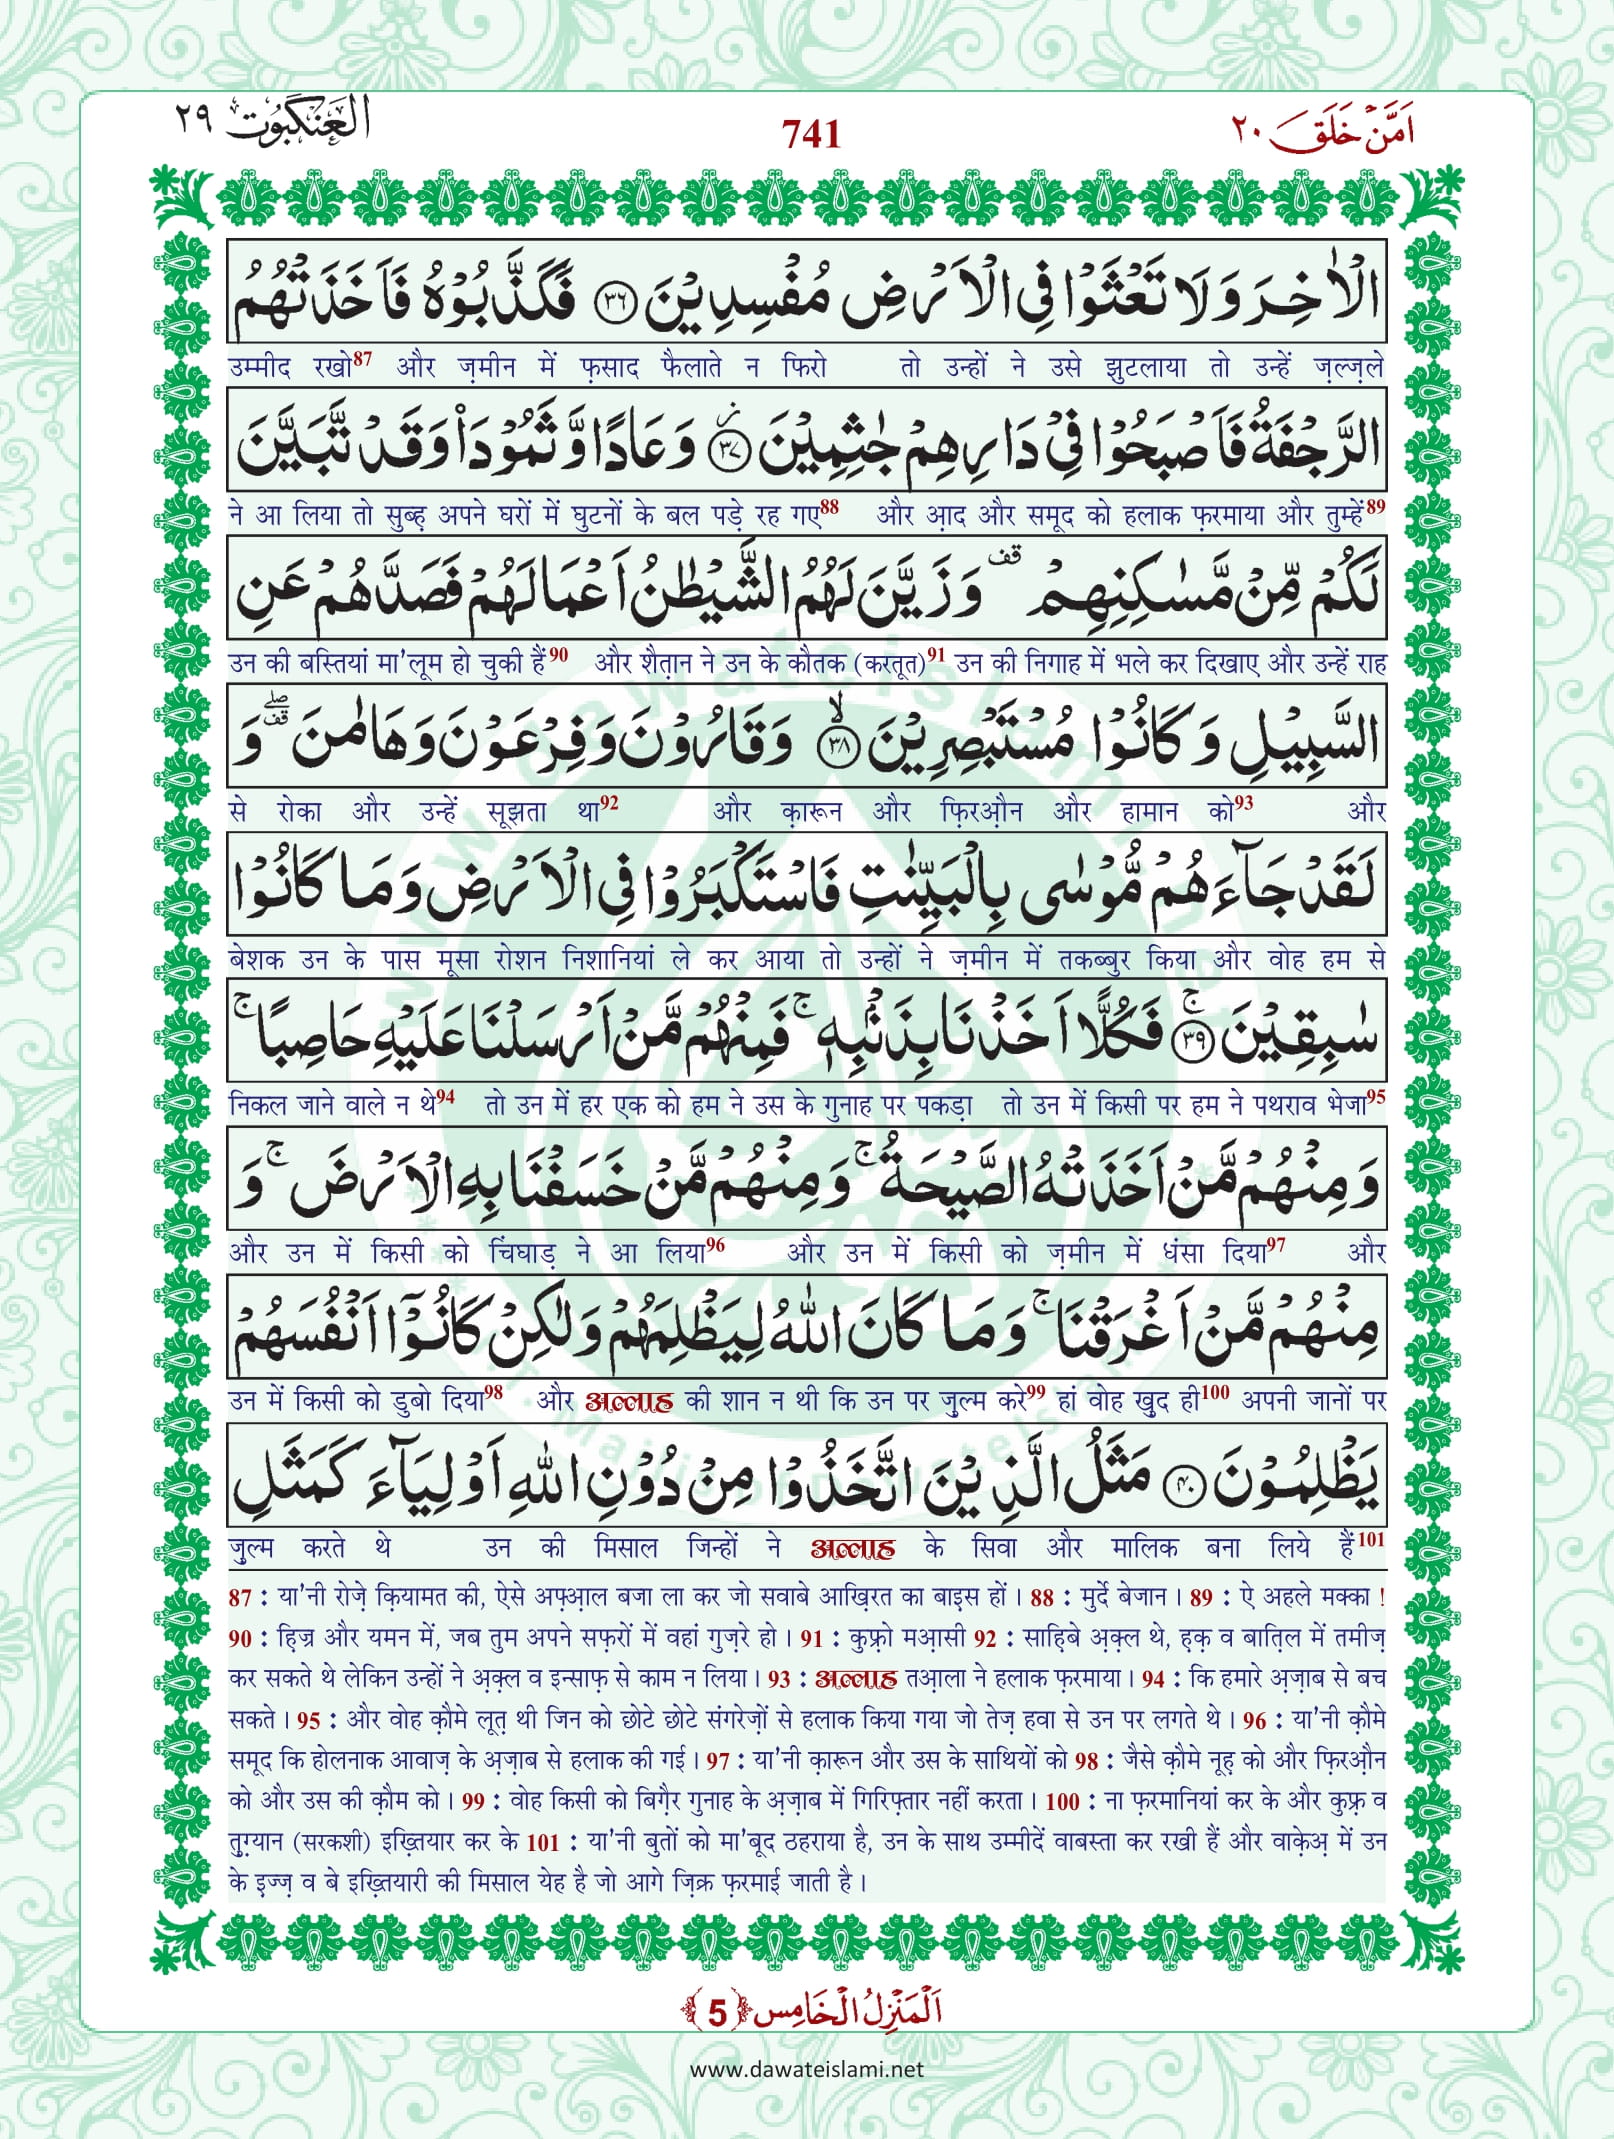 اَمَّنْ خَلَقَ ٢٠
741
الْعَنْكَبُوْت ٢٩
الْاٰخِرَ وَ لَا تَعْثَوْا فِی الْاَرْضِ مُفْسِدِیْنَ ﴿۳۶﴾ فَكَذَّبُوْهُ فَاَخَذَتْهُمُ
उम्मीद रखो87 और ज़मीन में फ़साद फैलाते न फिरो तो उन्हों ने उसे झुटलाया तो उन्हें ज़ल्ज़ले
الرَّجْفَةُ فَاَصْبَحُوْا فِیْ دَارِهِمْ جٰثِمِیْنَ ﴿۳۷﴾٘ وَ عَادًا وَّ ثَمُوْدَاۡ وَ قَدْ تَّبَیَّنَ
ने आ लिया तो सुब्ह़ अपने घरों में घुटनों के बल पड़े रह गए88 और आ़द और समूद को हलाक फ़रमाया और तुम्हें89
لَكُمْ مِّنْ مَّسٰكِنِهِمْ ۫ قف وَ زَیَّنَ لَهُمُ الشَّیْطٰنُ اَعْمَالَهُمْ فَصَدَّهُمْ عَنِ
उन की बस्तियां मा'लूम हो चुकी हैं90 और शैत़ान ने उन के कौतक (करतूत)91 उन की निगाह में भले कर दिखाए और उन्हें राह
السَّبِیْلِ وَ كَانُوْا مُسْتَبْصِرِیْنَ ﴿۳۸﴾ۙ وَ قَارُوْنَ وَ فِرْعَوْنَ وَ هَامٰنَ ۫ۖ قف وَ
से रोका और उन्हें सूझता था92 और क़ारून और फ़िरऔ़न और हामान को93 और
لَقَدْ جَآءَهُمْ مُّوْسٰى بِالْبَیِّنٰتِ فَاسْتَكْبَرُوْا فِی الْاَرْضِ وَ مَا كَانُوْا
बेशक उन के पास मूसा रोशन निशानियां ले कर आया तो उन्हों ने ज़मीन में तकब्बुर किया और वोह हम से
سٰبِقِیْنَ ﴿۳۹﴾ۚ فَكُلًّا اَخَذْنَا بِذَنْۢبِهٖ ۚ فَمِنْهُمْ مَّنْ اَرْسَلْنَا عَلَیْهِ حَاصِبًا ۚ
निकल जाने वाले न थे94 तो उन में हर एक को हम ने उस के गुनाह पर पकड़ा तो उन में किसी पर हम ने पथराव भेजा95
وَ مِنْهُمْ مَّنْ اَخَذَتْهُ الصَّیْحَةُ ۚ وَ مِنْهُمْ مَّنْ خَسَفْنَا بِهِ الْاَرْضَ ۚ وَ
और उन में किसी को चिंघाड़ ने आ लिया96 और उन में किसी को ज़मीन में धंसा दिया97 और
مِنْهُمْ مَّنْ اَغْرَقْنَا ۚ وَ مَا كَانَ اللّٰهُ لِیَظْلِمَهُمْ وَ لٰكِنْ كَانُوْۤا اَنْفُسَهُمْ
उन में किसी को डुबो दिया98 और अल्लाह की शान न थी कि उन पर ज़ुल्म करे99 हां वोह खुद ही100 अपनी जानों पर
یَظْلِمُوْنَ ﴿۴۰﴾ مَثَلُ الَّذِیْنَ اتَّخَذُوْا مِنْ دُوْنِ اللّٰهِ اَوْلِیَآءَ كَمَثَلِ
ज़ुल्म करते थे उन की मिसाल जिन्हों ने अल्लाह के सिवा और मालिक बना लिये हैं101
87 : या'नी रोज़े क़ियामत की, ऐसे अफ़्आ़ल बजा ला कर जो सवाबे आख़िरत का बाइस हों । 88 : मुर्दे बेजान । 89 : ऐ अहले मक्का !
90 : ह़िज्र और यमन में, जब तुम अपने सफ़रों में वहां गुज़रे हो । 91 : कुफ़्रो मआ़सी 92 : साह़िबे अ़क़्ल थे, ह़क़ व बात़िल में तमीज़
कर सकते थे लेकिन उन्हों ने अ़क़्ल व इन्साफ़ से काम न लिया । 93 : अल्लाह तआ़ला ने हलाक फ़रमाया । 94 : कि हमारे अ़ज़ाब से बच
सकते । 95 : और वोह क़ौमे लूत़ थी जिन को छोटे छोटे संगरेज़ों से हलाक किया गया जो तेज़ हवा से उन पर लगते थे । 96 : या'नी क़ौमे
समूद कि होलनाक आवाज़ के अ़ज़ाब से हलाक की गई । 97 : या'नी क़ारून और उस के साथियों को 98 : जैसे क़ौमे नूह़ को और फ़िरऔ़न
को और उस की क़ौम को । 99 : वोह किसी को बिग़ैर गुनाह के अ़ज़ाब में गिरिफ़्तार नहीं करता । 100 : ना फ़रमानियां कर के और कुफ़्र व
तुग़्यान (सरकशी) इख़्तियार कर के 101 : या'नी बुतों को मा'बूद ठहराया है, उन के साथ उम्मीदें वाबस्ता कर रखी हैं और वाक़ेअ़ में उन
के इ़ज्ज़ व बे इख़्तियारी की मिसाल येह है जो आगे ज़िक्र फ़रमाई जाती है ।
اَلْمَنْزِلُ الْخَامِس ﴿5﴾
www.dawateislami.net